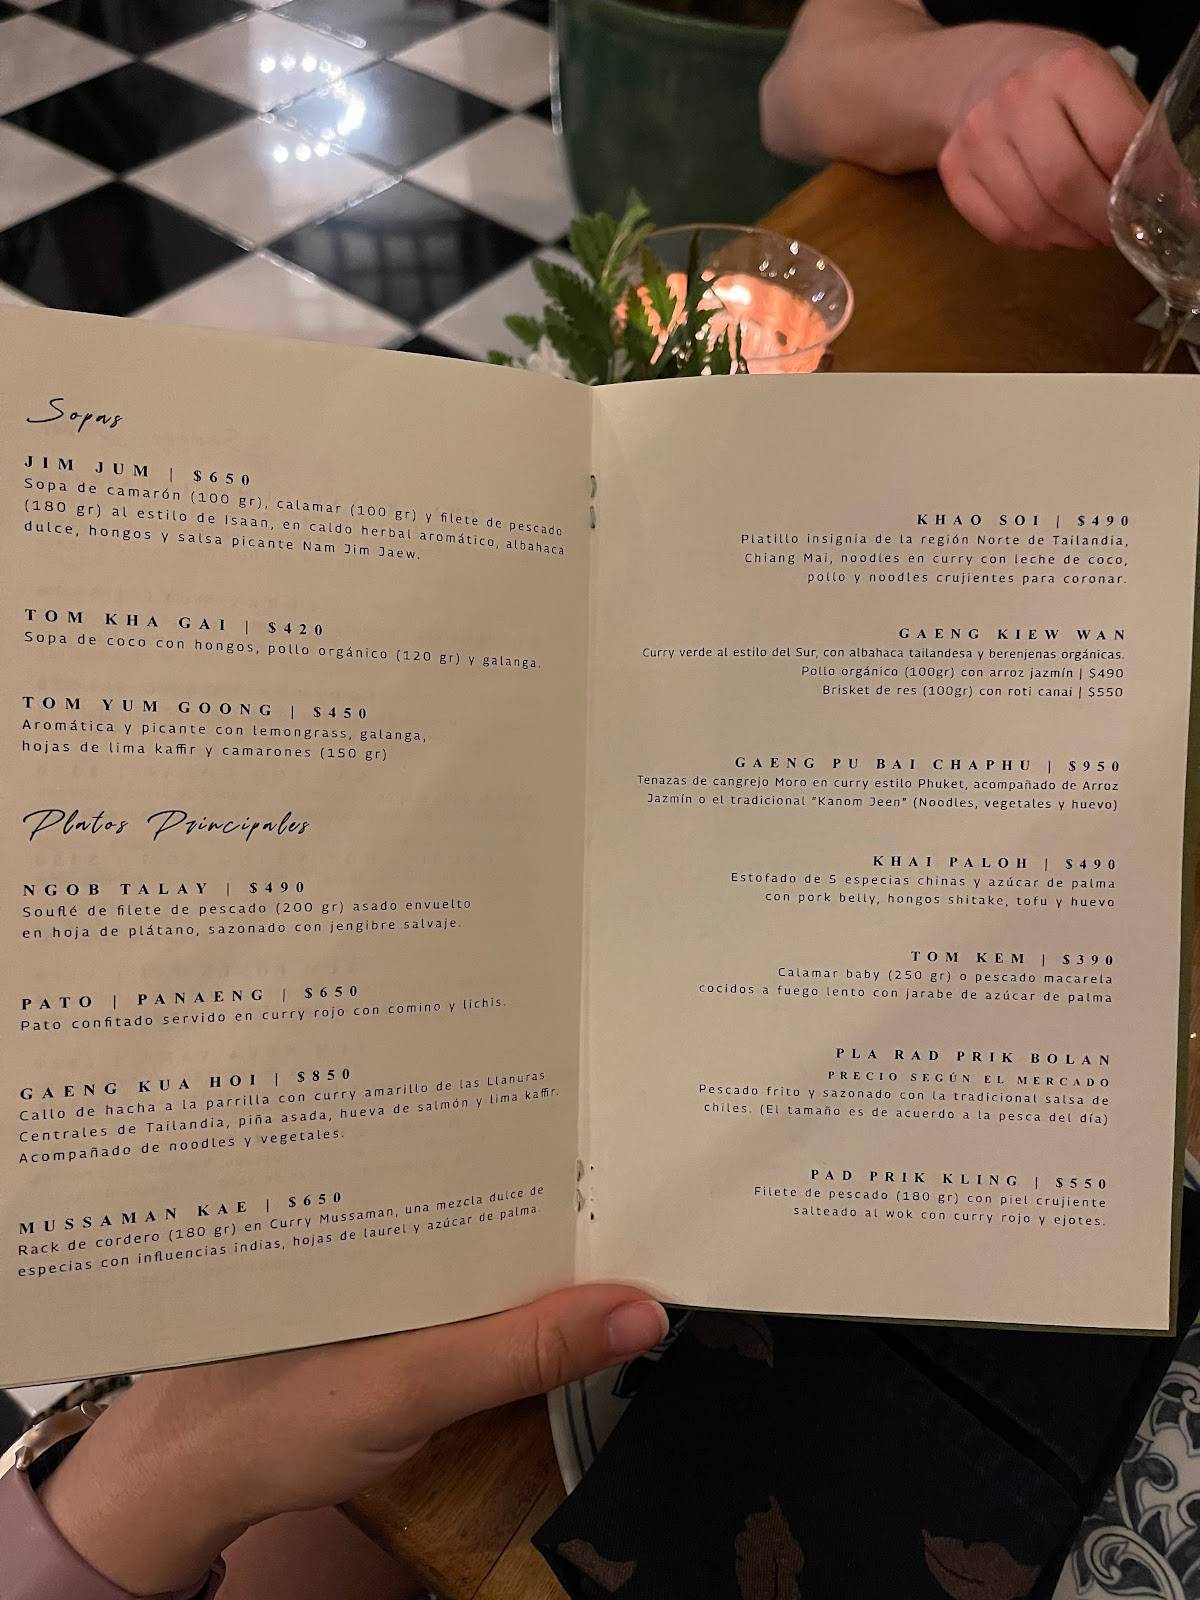 Sopas
JIM JUM | $650
Sopa de camarón (100 gr), calamar (100 gr) y filete de pescado
(180 gr) al estilo de Isaan, en caldo herbal aromático, albahaca
dulce, hongos y salsa picante Nam Jim Jaew.
TOM KHA GAI | $420
Sopa de coco con hongos, pollo orgánico (120 gr) y galanga.
TOM YUM GOONG | $450
Aromática y picante con lemongrass, galanga,
hojas de lima kaffir y camarones (150 gr)
Platos Principales
NGOB TALAY | $490
Souflé de filete de pescado (200 gr) asado envuelto
en hoja de plátano, sazonado con jengibre salvaje.
PATO | PANAENG | $650
Pato confitado servido en curry rojo con comino y lichis.
GAENG KUA HOI | $850
Callo de hacha a la parrilla con curry amarillo de las Llanuras
Centrales de Tailandia, piña asada, hueva de salmón y lima kaffir.
Acompañado de noodles y vegetales.
MUSSAMAN KAE | $650
Rack de cordero (180 gr) en Curry Mussaman, una mezcla dulce de
especias con influencias indias, hojas de laurel y azúcar de palma.
KHAO SOI | $490
Platillo insignia de la región Norte de Tailandia,
Chiang Mai, noodles en curry con leche de coco,
pollo y noodles crujientes para coronar.
GAENG KIEW WAN
Curry verde al estilo del Sur, con albahaca tailandesa y berenjenas orgánicas.
Pollo orgánico (100gr) con arroz jazmín | $490
Brisket de res (100gr) con roti canai | $550
GAENG PU BAI CHAPHU | $950
Tenazas de cangrejo Moro en curry estilo Phuket, acompañado de Arroz
Jazmín o el tradicional "Kanom Jeen" (Noodles, vegetales y huevo)
KHAI PALOH | $490
Estofado de 5 especias chinas y azúcar de palma
con pork belly, hongos shitake, tofu y huevo
TOM KEM | $390
Calamar baby (250 gr) o pescado macarela
cocidos a fuego lento con jarabe de azúcar de palma
PLA RAD PRIK BOLAN
PRECIO SEGÚN EL MERCADO
Pescado frito y sazonado con la tradicional salsa de
chiles. (El tamaño es de acuerdo a la pesca del día)
PAD PRIK KLING | $550
Filete de pescado (180 gr) con piel crujiente
salteado al wok con curry rojo y ejotes.